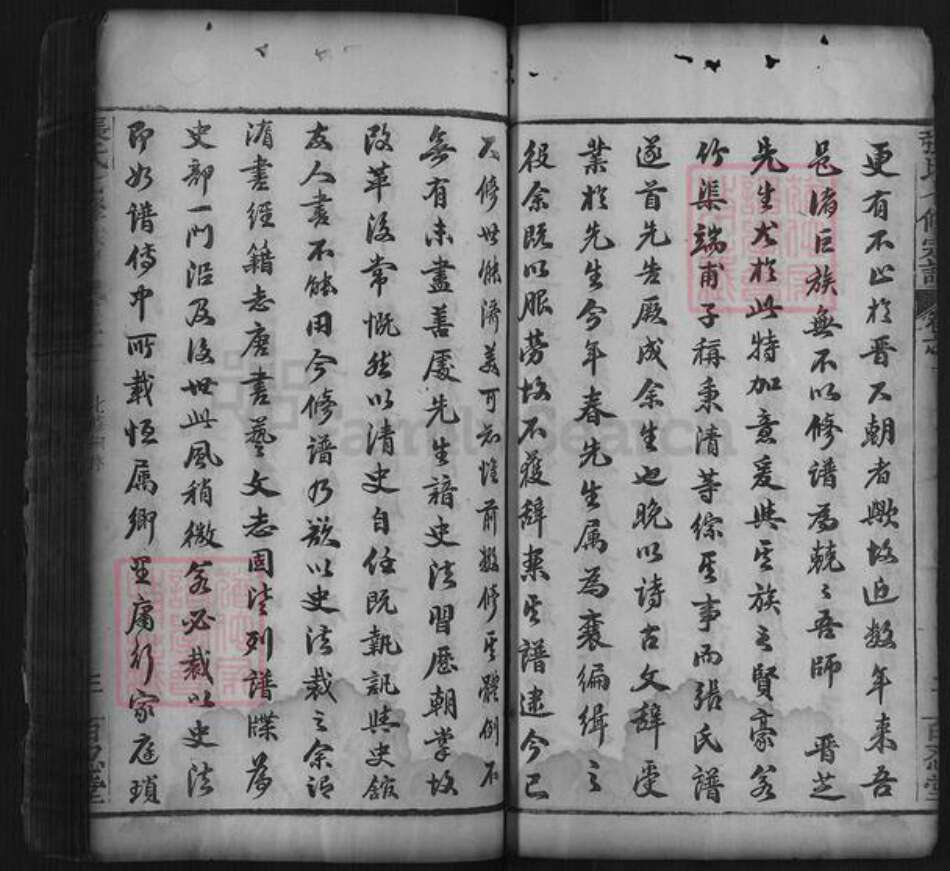 更有不止於晉天朝者歟故近數年來吾
邑諸巨族無不以修譜為兢兢吾師 晉芝
先生尤於此特加意爰與其族之賢豪若
竹渠端甫子稱秉清等綜其事而張氏譜
遂首先告厥成余生也晚以詩古文辭受
業於先生今年春先生属為襄編緝之
役余既以服勞故不獲辭案其譜逮今已
六修世能濟美可知惟前數修其體例不
無有未盡善處先生諳史法習歷朝掌故
改革後常慨然以清史自任既執訊與史館
友人書不能用今修譜乃欲以史法裁之余謂
隋書經籍志唐書藝文志固嘗列譜牒為
史部一門沿及後世此風稍微若必裁以史法
即如譜傳中所載恒属鄉里庸行家庭瑣
百忍堂
FamilySearch